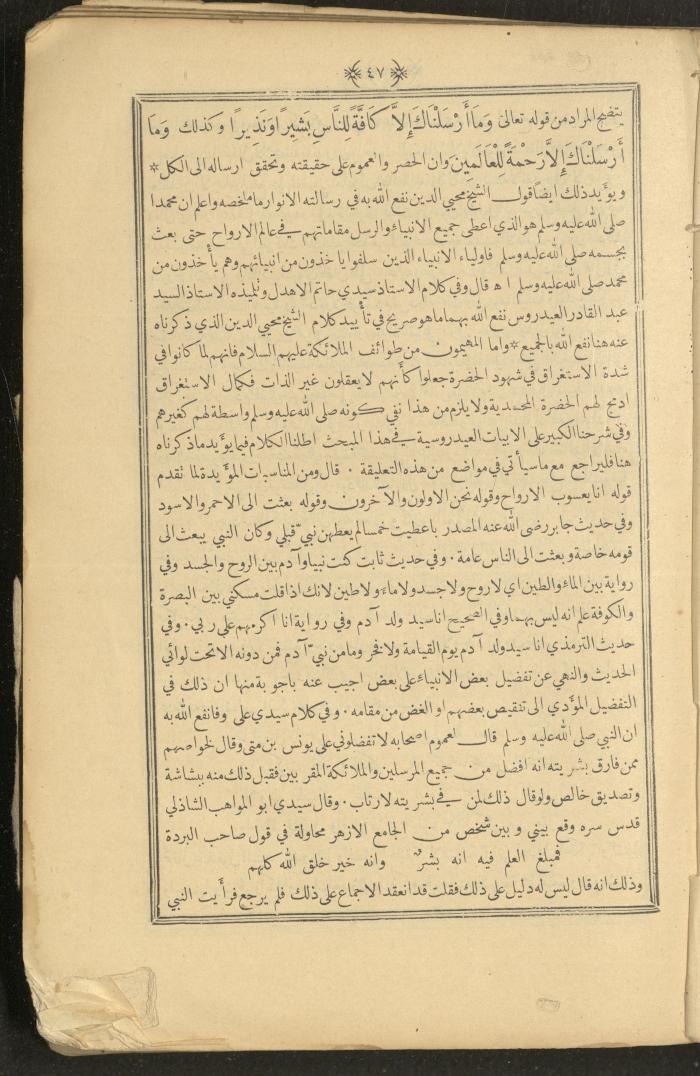 ٤٧
يتضح المراد من قوله تعالى وَمَا أَرْسَلْنَاكَ إِلاَّ كَافَّةً لِلنَّاسِ بَشِيرًا وَنَذِيرًا وكذلك وَمَا
أَرْسَلْنَاكَ إِلاَّ رَحْمَةً لِلْعَالَمِينَ وان الحصر والعموم على حقيقته وتحقق ارساله الى الكل *
ويؤيد ذلك ايضا قول الشيخ محيي الدين نفع الله به في رسالته الانوار ما ملخصه واعلم ان محمدا
صلى الله عليه وسلم هو الذي اعطى جميع الانبياء والرسل مقاماتهم في عالم الارواح حتى بعث
بجسمه صلى الله عليه وسلم فاولياء الانبياء الذين سلفوا ياخذون من انبيائهم وهم يأخذون من
محمد صلى الله عليه وسلم اه قال وفي كلام الاستاذ سيدي حاتم الاهدل وتلميذه الاستاذ السيد
عبد القادر العيدروس نفع الله بهما ما هو صريح في تأييد كلام الشيخ محيي الدين الذي ذكرناه
عنه هنا نفع الله بالجميع * واما المهيمون من طوائف الملائكة عليهم السلام فانهم لما كانوا في
شدة الاستغراق في شهود الحضرة جعلوا كأنهم لا يعقلون غير الذات فكمال الاستغراق
ادمج لهم الحضرة المحمدية ولا يلزم من هذا نفي كونه صلى الله عليه وسلم واسطة لهم كغيرهم
وفي شرحنا الكبير على الابيات العيدروسية في هذا المبحث اطلنا الكلام فيما يؤيد ما ذكرناه
هنا فليراجع مع ما سيأتي في مواضع من هذه التعليقة ٠ قال ومن المناسبات المؤيدة لما تقدم
قوله انا يعسوب الارواح وقوله نحن الاولون والآخرون وقوله بعثت الى الاحمر والاسود
وفي حديث جابر رضى الله عنه المصدر باعطيت خمسا لم يعطهن نبيّ قبلي وكان النبي يبعث الى
قومه خاصة وبعثت الى الناس عامة ٠ وفي حديث ثابت كنت نبيا وآدم بين الروح والجسد وفي
رواية بين الماء والطين اي لا روح ولا جسد ولا ماء ولا طين لانك اذا قلت مسكني بين البصرة
والكوفة علم انه ليس بهما وفي الصحيح انا سيد ولد آدم وفي رواية انا اكرمهم على ربي ٠ وفي
حديث الترمذي انا سيد ولد آدم يوم القيامة ولا فخر وما من نبيّ آدم فمن دونه الا تحت لوائي
الحديث والنهي عن تفضيل بعض الانبياء على بعض اجيب عنه باجوبة منها ان ذلك في
التفضيل المؤدي الى تنقيص بعضهم او الغض من مقامه ٠ وفي كلام سيدي على وفا نفع الله به
ان النبي صلى الله عليه وسلم قال لعموم اصحابه لا تفضلوني على يونس بن متى وقال لخواصهم
ممن فارق بشريته انه افضل من جميع المرسلين والملائكة المقربين فقبل ذلك منه ببشاشة
وتصديق خالص ولو قال ذلك لمن في بشريته لارتاب ٠ وقال سيدي ابو المواهب الشاذلي
قدس سره وقع بيني وبين شخص من الجامع الازهر محاولة في قول صاحب البردة
فمبلغ العلم فيه انه بشرٌ وانه خير خلق الله كلهم
وذلك انه قال ليس له دليل على ذلك فقلت قد انعقد الاجماع على ذلك فلم يرجع فرأيت النبي